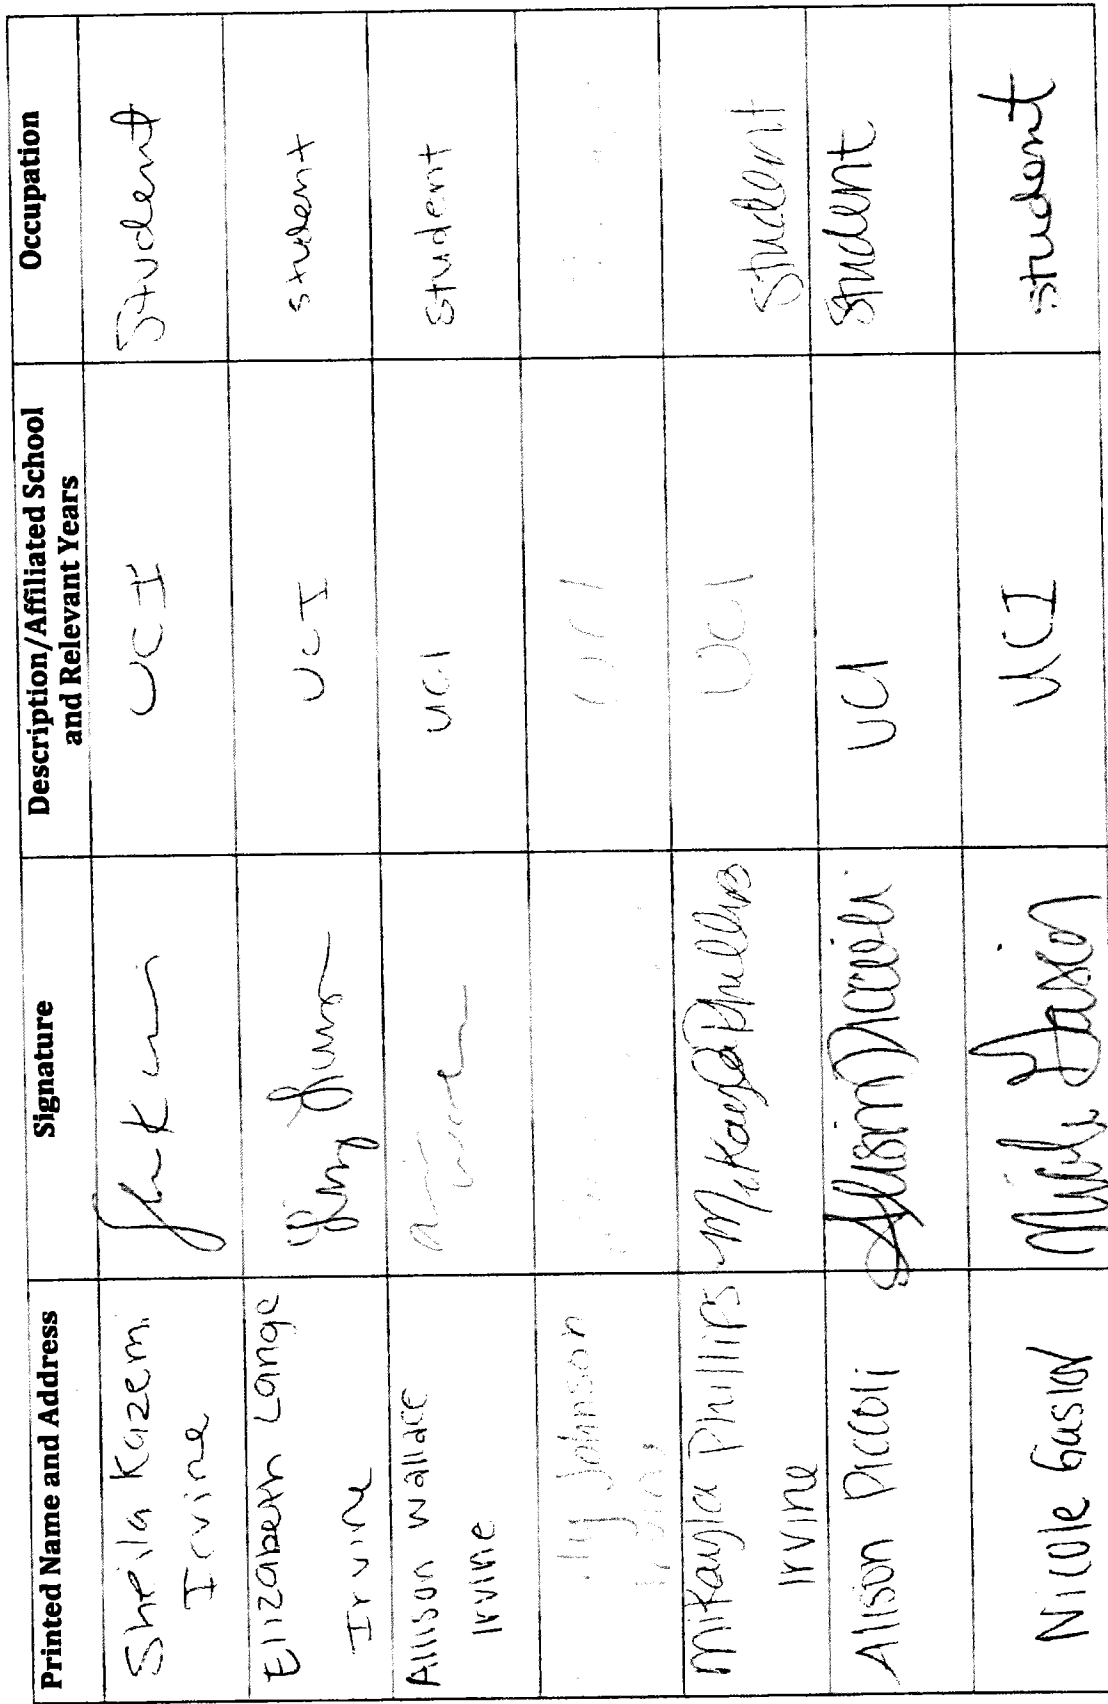 Printed Name and Address
Signature
Description/Affiliated School
and Relevant Years
Occupation
Sheila Kazemi
Irvine
UCI
Student
Elizabeth Lange
Irvine
UCI
student
Allison Wallace
Irvine
UCI
student
Johnson
UCI
Mikayla Phillips
Irvine
Mikayla Phillips
UCI
Student
Alison Piccoli
Alison Piccoli
UCI
Student
Nicole Gasior
Nicole Gasior
UCI
student